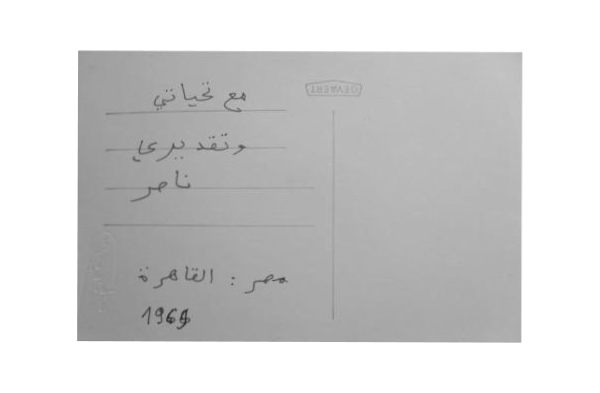 GEVAERT
مع تحياتي
وتقديري
ناصر
مصر : القاهرة
1969